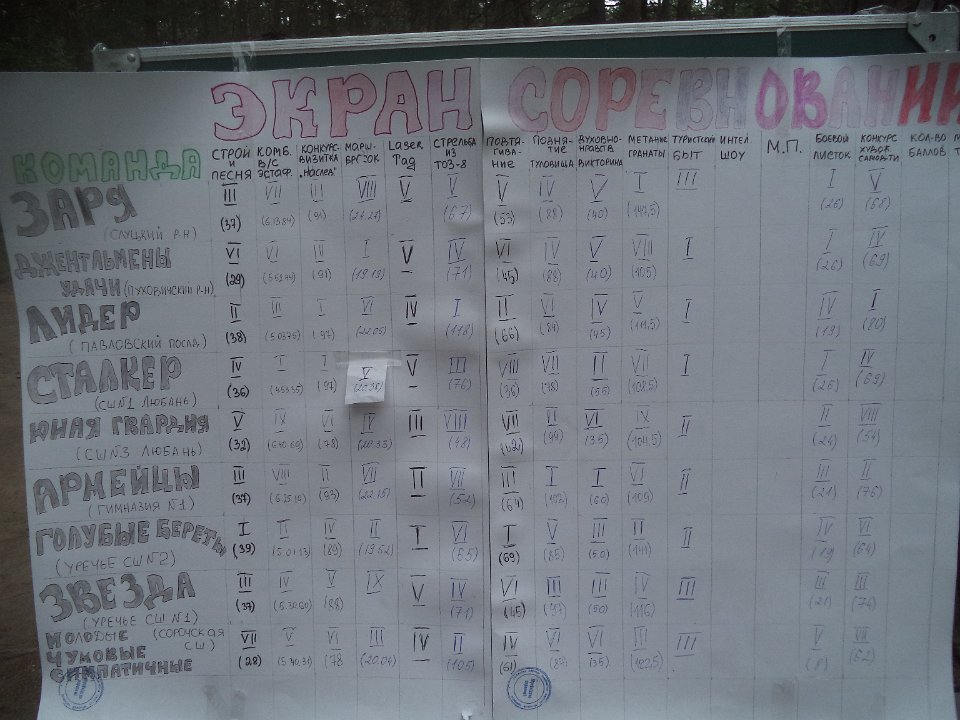 ЭКРАН СОРЕВНОВАНИ
КОМАНДА СТРОЙ И ПЕСНЯ КОМБ. В/С ЭСТАФ. КОНКУРС- ВИЗИТКА „НАСЛЕД" МАРШ- БРОСОК Laser Tag СТРЕЛЬБА ИЗ ТОЗ-8 ПОДТЯ- ГИВА- НИЕ ПОДНЯ- ТИЕ ТУЛОВИЩА ДУХОВНО- НРАВСТВ ВИКТОРИНА МЕТАНИЕ ГРАНАТЫ ТУРИСТСКИЙ БЫТ ИНТЕЛ ШОУ М.П. БОЕВОЙ ЛИСТОК КОНКУРС ХУДОЖ. САМОДЕЯТ КОЛ-ВО БАЛЛОВ
ЗАРЯ III VII III VIII V V V IV V I III I V
(СЛУЦКИЙ Р-Н) (37) (6.13.84) (91) (67) (53) (88) (40) (26) (68)
ДЖЕНТЛЬМЕНЫ VI VI III I V IV VI IV V VIII I I IV
УДАЧИ (ПУХОВИЧСКИЙ Р-Н) (29) (91) (19.19) (71) (45) (88) (40) (105) (26) (69)
ЛИДЕР II III I VI IV I II VI IV V I IV I
(ПАВЛОВСКИЙ ПОСАД) (38) (97) (22.05) (118) (66) (84) (45) (19) (80)
СТАЛКЕР IV I I V V III VIII VII II VII I I IV
(СШ №1 ЛЮБАНЬ) (36) (97) (76) (36) (78) (55) (108,5) (26) (69)
ЮНАЯ ГВАРДИЯ V IX VI IV III VIII VII II VI IX II II VIII
(СШ №3 ЛЮБАНЬ) (32) (78) (20.33) (48) (42) (99) (35) (104,5) (24) (54)
АРМЕЙЦЫ III VIII II VII II VII III I I VI II III II
(ГИМНАЗИЯ №1) (37) (6.25.10) (93) (22.15) (52) (64) (60) (109) (21) (76)
ГОЛУБЫЕ БЕРЕТЫ I II IV II I VI I V III II II IV VI
(УРЕЧЬЕ СШ №2) (39) (5.01.13) (89) (19.52) (65) (69) (85) (50) (19) (64)
ЗВЕЗДА III IV V IX V IV VI III III IV III III III
(УРЕЧЬЕ СШ №1) (37) (88) (71) (45) (50) (116) (21) (74)
МОЛОДЫЕ (СОРОЧСКАЯ СШ) VII V VI III IV II IV V VI III III V VII
ЧУМОВЫЕ (28) (5.40.31) (78 (20.04) (105) (61) (35) (122,5) (8) (62)
СИМПАТИЧНЫЕ